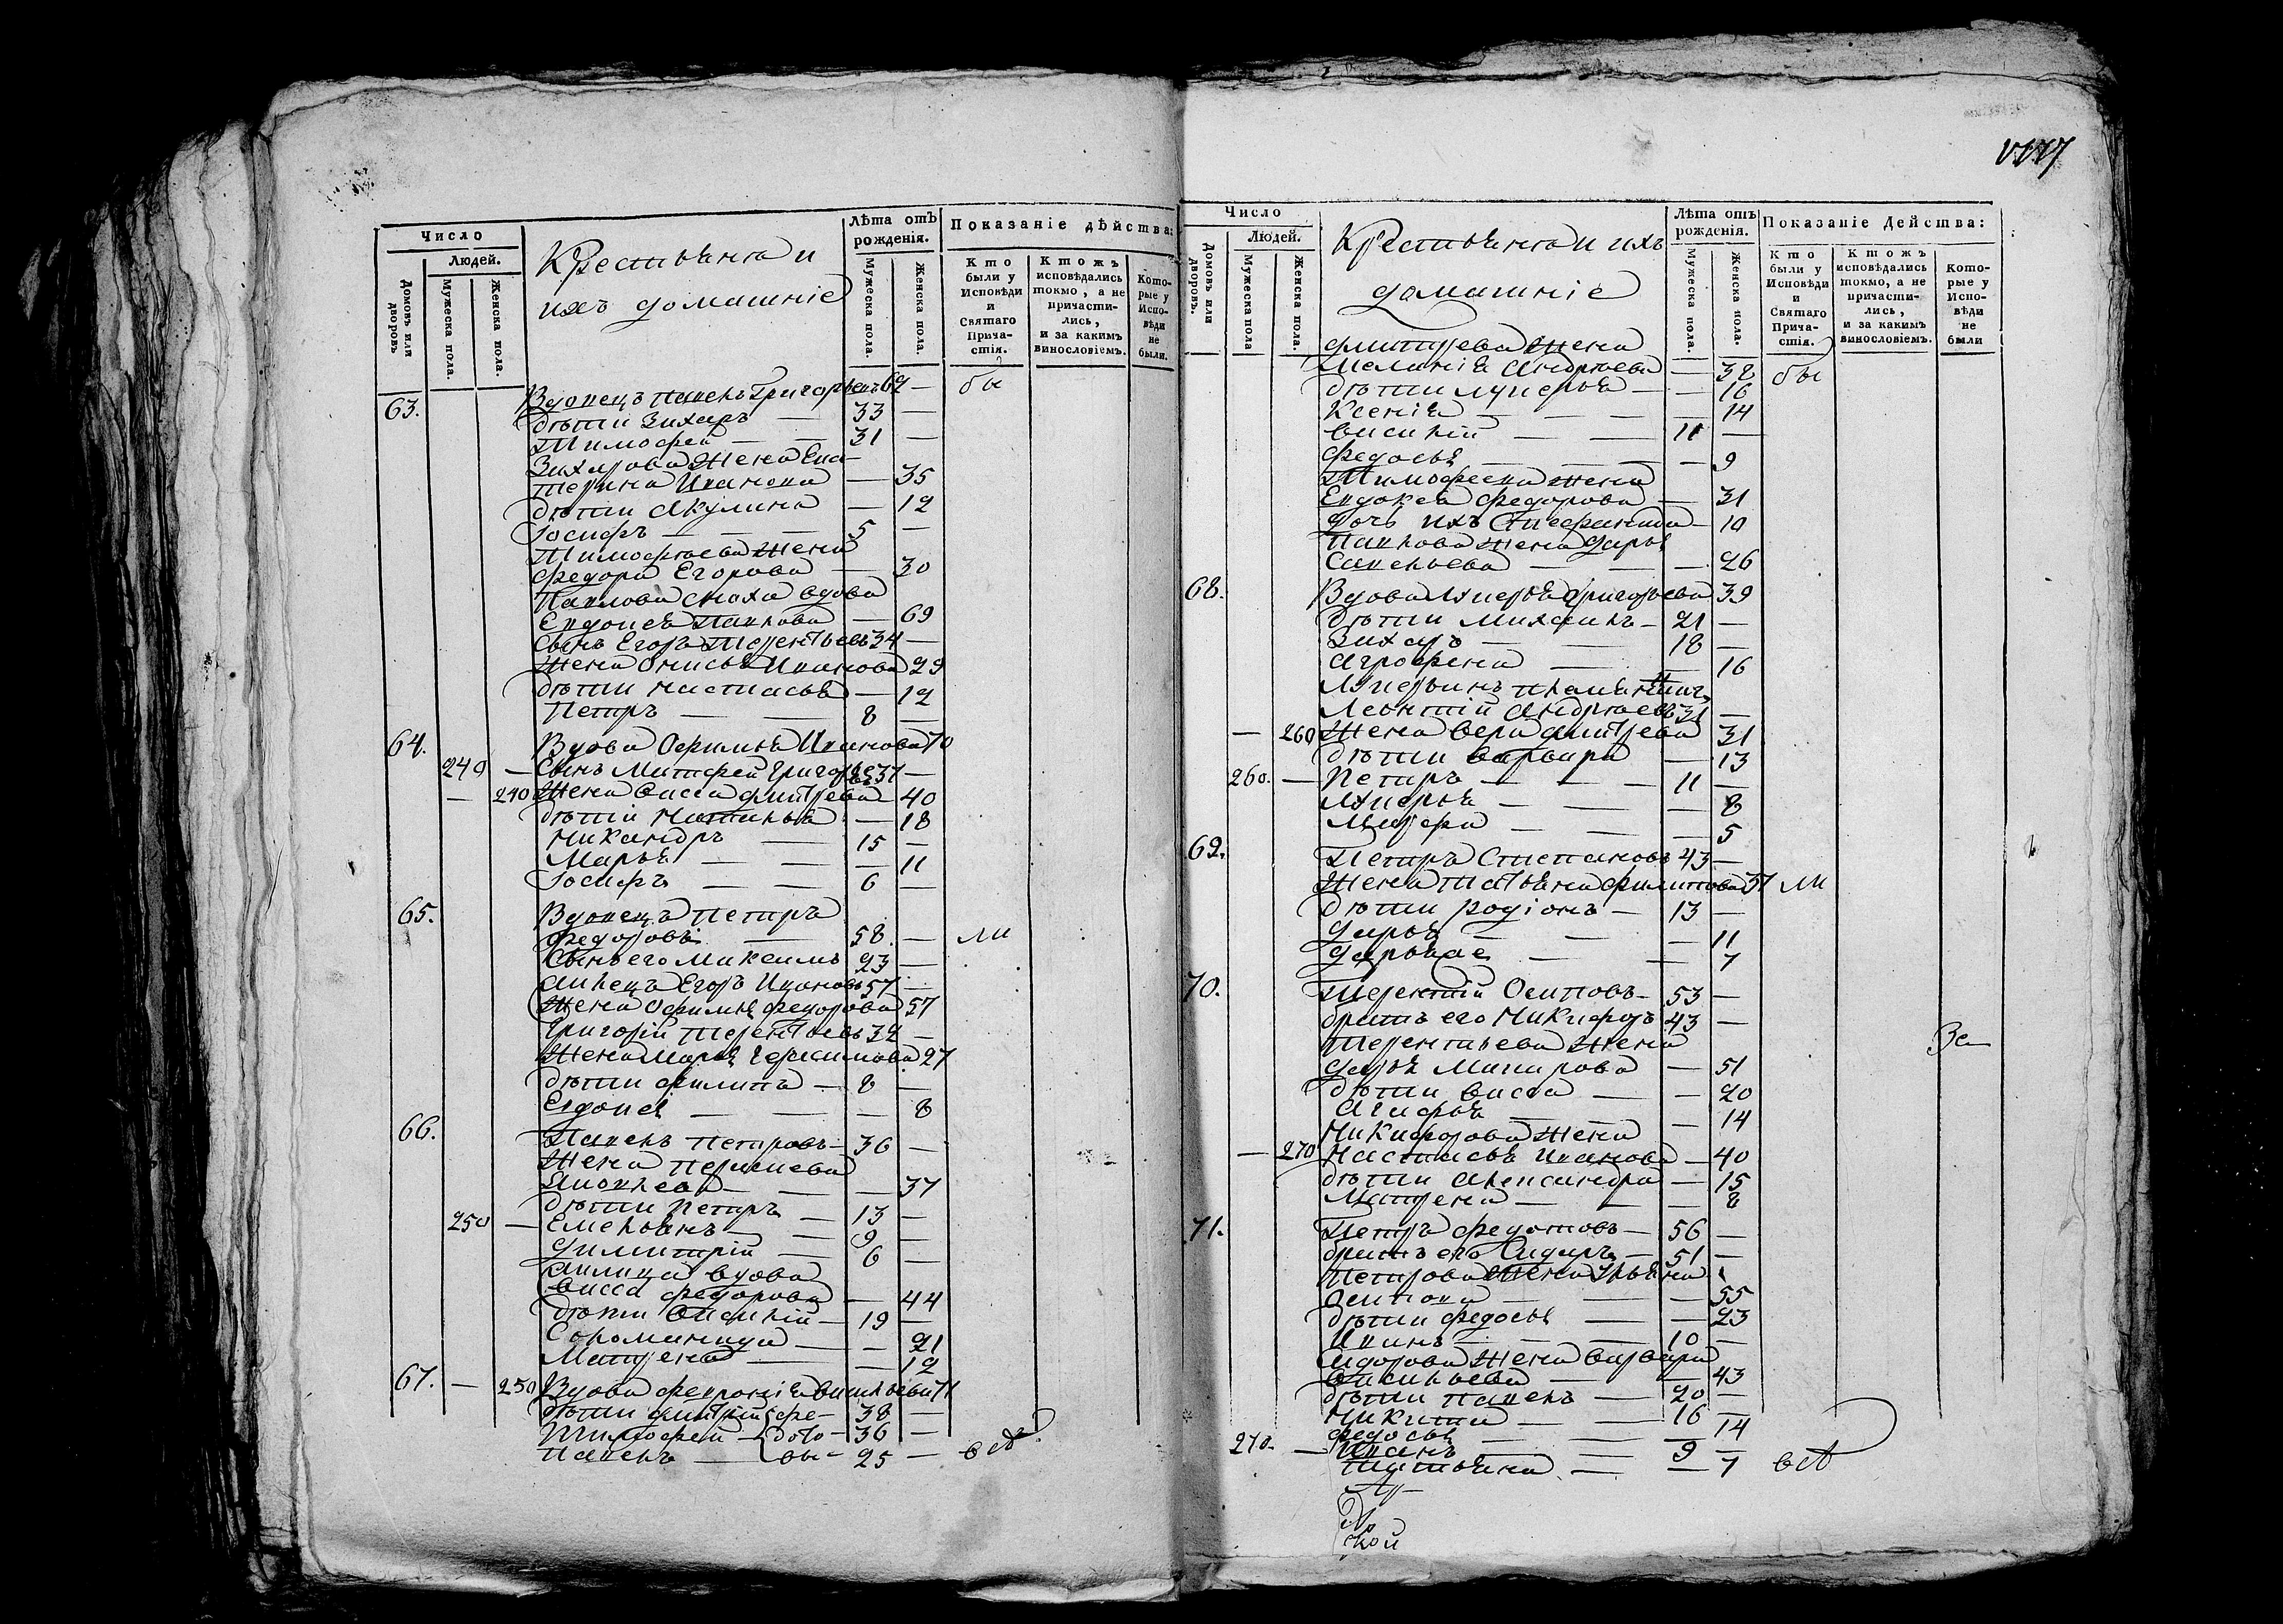 Число
Людей.
Домовъ или дворовъ
Мужеска пола.
Женска пола.
Крестьяне и
ихъ домашніе
Лѣта отъ рожденія.
Мужеска пола.
Женска пола.
Показаніе дѣйства:
Кто были у Исповѣди и Святаго Причастія.
Кто жъ исповѣдались токмо, а не причастились, и за какимъ винословіемъ.
Которые у Исповѣди не были.
63. Вдовецъ Павелъ Григорьевъ 69 — бы
дѣти Захаръ — 33 —
Тимофей — — 31 —
Захарова жена Ека-
терина Иванова — 35
дѣти Акулина — 12
Іосифъ — — — 5 —
Тимофѣева жена
Федора Егорова — 30
Павлова сноха вдова
Евдокея Павлова — 69
Сынъ Егоръ Терентьевъ 34 —
Жена Анисья Иванова 29
дѣти Настасья — 12
Петръ — — 8 —
64. Вдова Офимья Иванова 70
240 — Сынъ Матфей Григорьевъ 37 —
— 240 Жена Васса Дмитрева 40
дѣти Наталья — 18
Никандръ — 15 —
Марья — — — 11
Іосифъ — — 6 —
65. Вдовецъ Петръ
Федоровъ — 58. — ли
Сынъ его Максимъ 23 —
Егоръ Ивановъ 57 —
Жена Офимья Федорова 57
Григорій Терентьевъ 32 —
Жена Марья Герасимова 27
дѣти Филипъ — 8 —
Евдокея — — — 8
66. Павелъ Петровъ — 36 —
Жена
Яковлева — — 37
дѣти Петръ — 13 —
250 — Емельянъ — — 9 —
Димитрій — 6 —
вдова
Васса Федорова — 44
дѣти Василій — 19 —
Соломанида — — 21
Матрена — — 12
67. — 250 Вдова Февронія Васильева 71
дѣти Дмитрій Фе- 38 —
Тимофей — дото- 36 —
Павелъ — вы- 25 — вА
1117
Число
Людей.
Домовъ или дворовъ.
Мужеска пола
Женска пола.
Крестьяне и ихъ
домашніе
Лѣта отъ рожденія.
Мужеска пола.
Женска пола.
Показаніе Действа:
Кто были у Исповѣди и Святаго Причастія.
Кто жъ исповѣдались токмо, а не причастились, и за какимъ винословіемъ.
Которые у Исповѣди не были
Дмитрева жена
Меланія Андреева — 38 бы
дѣти Лукерья — — 16
Ксенія — — — — 14
Василій — — 11 —
Федосья — — — 9
Тимофеева жена
Евдокея Федорова — 31
дочь ихъ — 10
Павлова жена Дарья
Савельева — — — 26
68. Вдова Лукерья Григорьева 39
дѣти Михаилъ — 21 —
Захаръ — — 18 —
Агрофена — — 16
Лукерьинъ племянникъ
Леонтій Андреевъ 31 —
— 260 Жена Вера Дмитрева 31
дѣти Варвара — 13
260. — Петръ — — — 11 —
Лукерья — — — 8
Марфа — — — 5
69. Петръ Степановъ 43 —
Жена Татьяна Филипова 37 ли
дѣти Родіонъ — 13 —
Дарья — — — 11
Дарья же — — 7
70. Терентій Осиповъ — 53 —
братъ его Никифоръ 43 —
Терентьева жена За
Дарья Макарова — 51
дѣти Васса — — 20
Агафья — — — 14
Никифорова жена
— 270 Настасья Иванова — 40
дѣти Александра — 15
Матрена — — — 8
71. Петръ Федотовъ — 56 —
братъ его Сидоръ — 51 —
Петрова жена Ульяна
Осипова — — — 55
дѣти Федосья — — 23
Иванъ — — — 10 —
Сидорова жена Варвара
Васильева — — 43
дѣти Павелъ — 20 —
Никита — — 16 —
Федосья — — — 14
270. — Иванъ — — 9 —
Татьяна — — 7 вА
ской